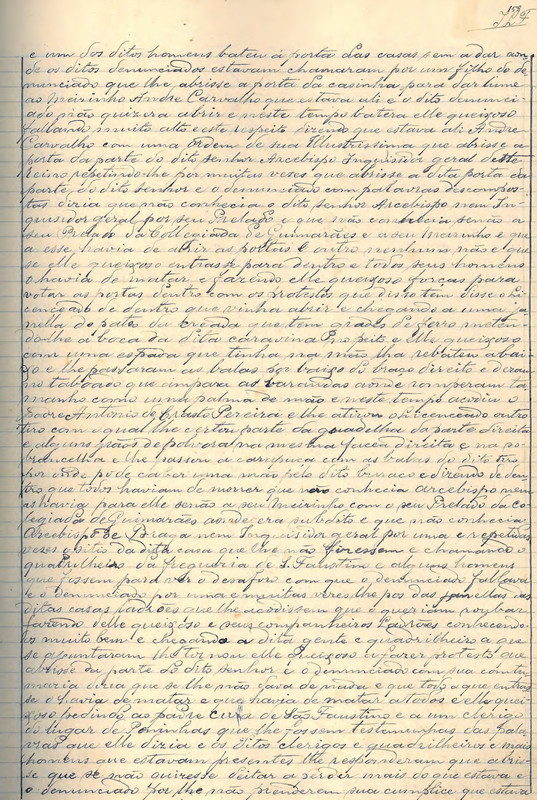 158
e um dos ditos homens bateu á porta das casas sem a dar aon-
de os ditos denunciados estavam chamaram por um filho do de-
nunciado que lhe abrisse a porta da casinha para dar lume
ao Meirinho Andre Carvalho que estava ali e o dito denunci-
ado não quizera abrir e neste tempo batera elle queixoso
fallando muito alto e este respeito dizendo que estava ali Andre
Carvalho com uma ordem de sua Illustrissima que abrisse a
porta da parte do dito senhor Arcebispo Inquisidor geral deste
reino repetindo-lhe por muitas veses que abrisse a dita porta da
parte do dito senhor e o denunciado com palavras descompos-
tas dizia que não conhecia o dito senhor Arcebispo nem In-
quisidor geral por seu Prelado e que não conhecia senão a
seu Prelado da Collegiada de Guimarães e a seu Meirinho e que
a esse havia de abrir as portas e outro nenhum não e que
se elle queixoso entrasse para dentro e todos seus homens
o havia de matar e fazendo elle queixoso forças para
votar as portas dentro com os protestos que disso tem disse o Li-
cenceado de dentro que vinha abrir e chegando a uma ja-
nella do patio da creada que tem grades de ferro meten-
do-lhe a boca da dita caravina no peito e elle queixoso
com uma espada que tinha na mão lha rebateu abai-
xo e lhe passaram as balas por baixo do braço direito e deram
no taboado que ampara as varandas aonde romperam ta-
manho como uma palma de mão e neste tempo acodiu o
Padre Antonio de Crasto Pereira e lhe atirou o Licenceado outro
tiro com o qual lhe cortou parte da guadelha da parte direita
e alguns grãos de polvora na mesma face direita e na so-
brancelha e lhe passou a carapuça com as balas do dito tiro
por onde pode caber uma mão pelo dito buraco e dizendo de den-
tro que todos haviam de morrer que não conhecia Arcebispo nem
as havia para elle senão a seu Meirinho com o seu Prelado da Co-
legiada de Guimarães aonde era subdito e que não conhecia
Arcebispo de Braga nem Inquisidor geral por uma e repetidas
veses e sitio da dita casa que lhe não fizessem e chamando o
quadrilheiro da freguesia de S. Faustino e alguns homens
que fossem para ver o desaforo com que o denunciado fallava
e o denunciado por uma e muitas veses lhe pos das janellas das
ditas casas ladrões que lhe acodissem que o queriam roubar
fazendo delle queixoso e seus companheiros Ladrões conhecendo-
os muito bem e chegando a dita gente e quadrilheiro a que
se apuntaram lhe tornou elle queixoso a fazer protesto que
abrisse da parte do dito senhor e o denunciado com sua contu-
maria dizia que se lhe não dava de nada e que todo o que entras-
se o havia de matar e que havia de matar a todos e elle quei-
xoso pedindo ao padre Cura de São Faustino e a um clerigo
do lugar de Poninhas que lhe fossem testemunhas das pala-
vras que elle dizia e os ditos clerigos e quadrilheiros e mais
homens que estavam presentes lhe responderam que abris-
se que se não quizesse deitar a perder mais do que estava e
o denunciado por lhe não prenderem sua cumplice que estava